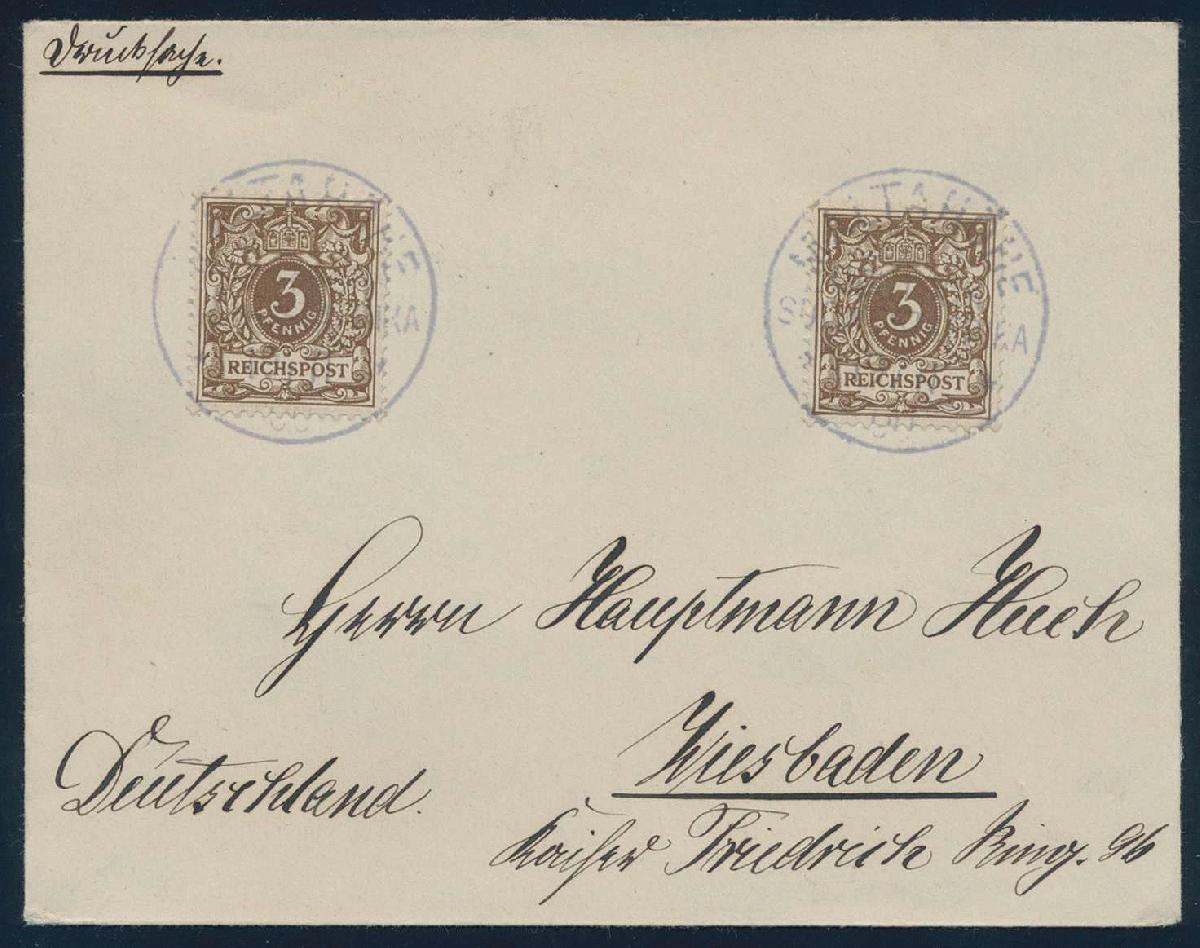 Drucksache.
3
PFENNIG
REICHSPOST
3
PFENNIG
REICHSPOST
Herrn Hauptmann Huch
Wiesbaden
Deutschland.
Kaiser Friedrich Ring. 96